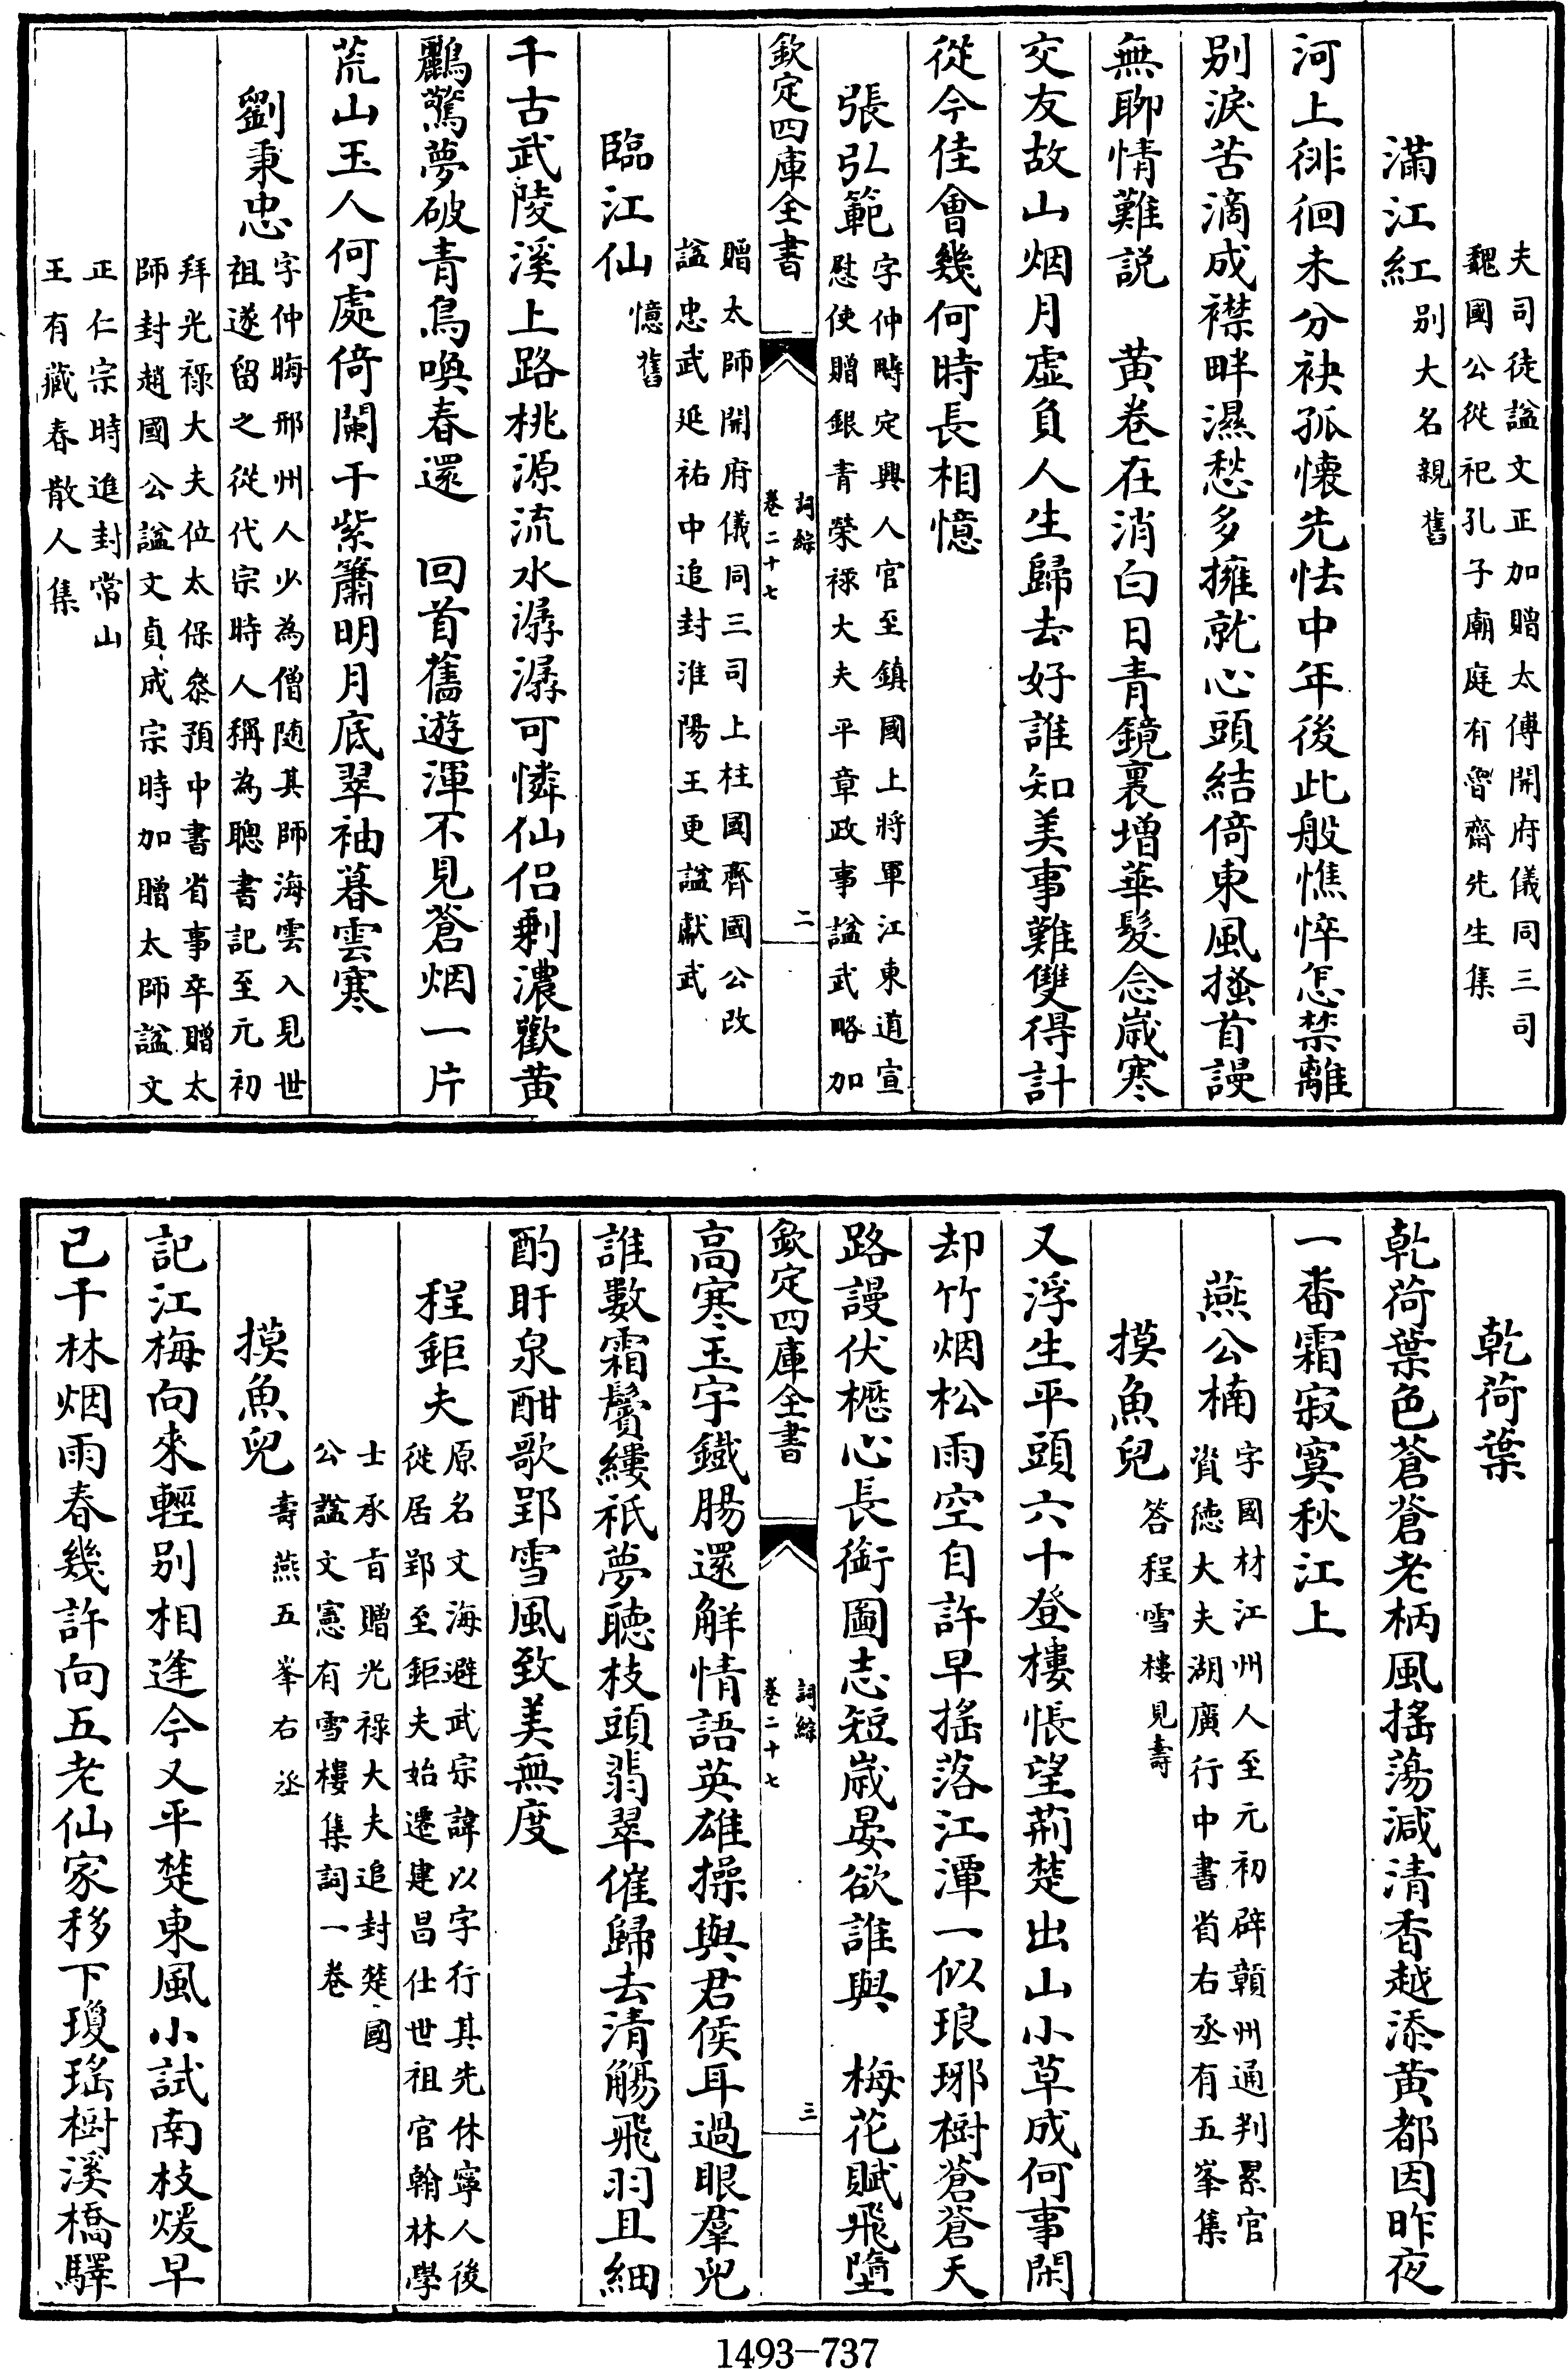 夫司徒諡文正加贈太傅開府儀同三司
魏國公從祀孔子廟庭有魯齋先生集
滿江紅別大名親舊
河上徘徊未分袂孤懷先怯中年後此般憔悴怎禁離
别淚苦滴成襟畔濕愁多擁就心頭結倚東風搔首謾
無聊情難説　黄卷在消白日青鏡裏增華髮念嵗寒
交友故山烟月虚負人生歸去好誰知美事難雙得計
從今佳會幾何時長相憶
張弘範字仲疇定興人官至鎮國上將軍江東道宣
慰使贈銀青榮禄大夫平章政事諡武略加
欽定四庫全書
詞綜
卷二十七
二
贈太師開府儀同三司上柱國齊國公改
諡忠武延祐中追封淮陽王更諡獻武
臨江仙憶舊
千古武陵溪上路桃源流水潺潺可憐仙侣剩濃歡黄
鸝驚夢破青鳥喚春還　回首舊遊渾不見蒼烟一片
荒山玉人何處倚闌干紫簫明月底翠袖暮雲寒
劉秉忠字仲晦邢州人少為僧随其師海雲入見世
祖遂留之從代宗時人稱為聰書記至元初
拜光禄大夫位太保叅預中書省事卒贈太
師封趙國公諡文貞成宗時加贈太師諡文
正仁宗時進封常山
王有藏春散人集
乾荷葉
乾荷葉色蒼蒼老柄風搖蕩減清香越添黄都因昨夜
一番霜寂寞秋江上
燕公楠字國材江州人至元初辟贑州通判累官
資徳大夫湖廣行中書省右丞有五峯集
摸魚兒答程雪樓見壽
又浮生平頭六十登樓悵望荊楚出山小草成何事閑
却竹烟松雨空自許早搖落江潭一似琅琊樹蒼蒼天
路謾伏櫪心長銜圖志短嵗晏欲誰與　梅花賦飛墮
欽定四庫全書
詞綜
卷二十七
三
高寒玉宇鐵腸還解情語英雄操與君侯耳過眼羣兒
誰數霜鬢縷祇夢聴枝頭翡翠催歸去清觴飛羽且細
酌盱泉酣歌郢雪風致美無度
程鉅夫原名文海避武宗諱以字行其先休寧人後
從居郢至鉅夫始遷建昌仕世祖官翰林學
士承㫖贈光禄大夫追封楚國
公諡文憲有雪樓集詞一卷
摸魚兒壽燕五峯右丞
記江梅向來輕别相逢今又平楚東風小試南枝煖早
已千林烟雨春幾許向五老仙家移下瓊瑤樹溪橋驛
1493-737